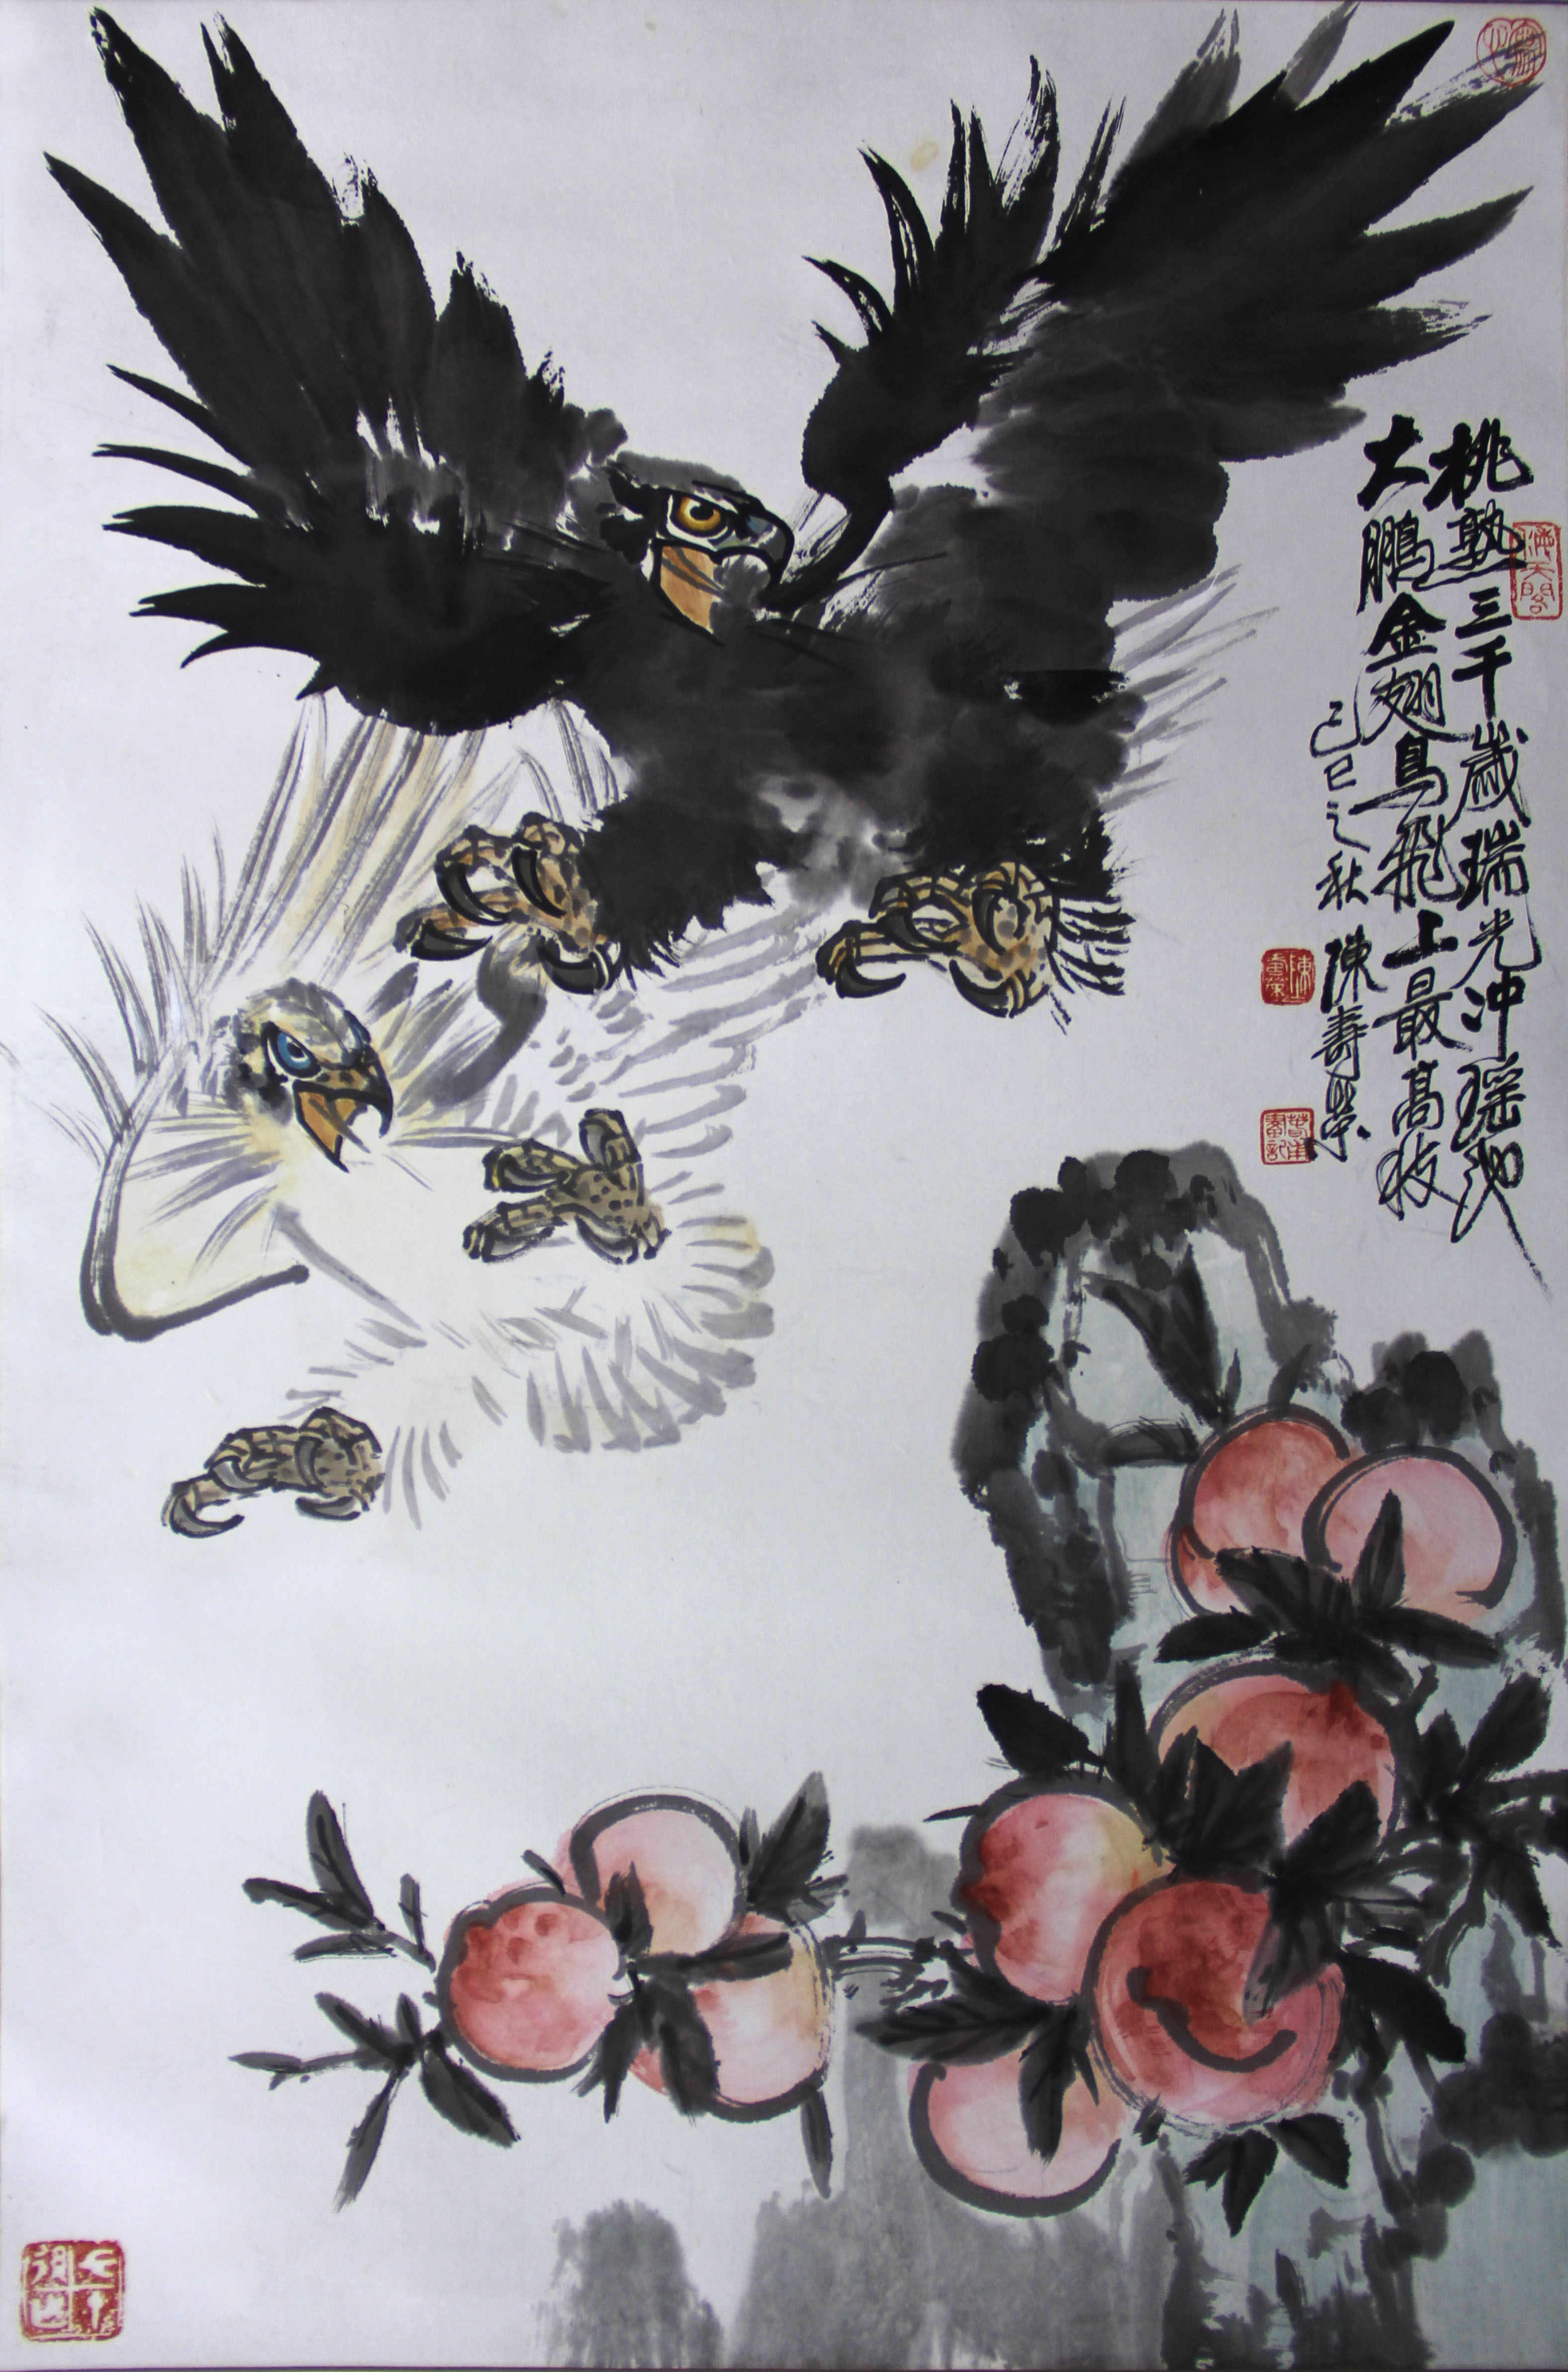 桃熟三千歲瑞光冲瑶池
大鵬金翅鳥飛上最高枝
己巳之秋 陳壽榮